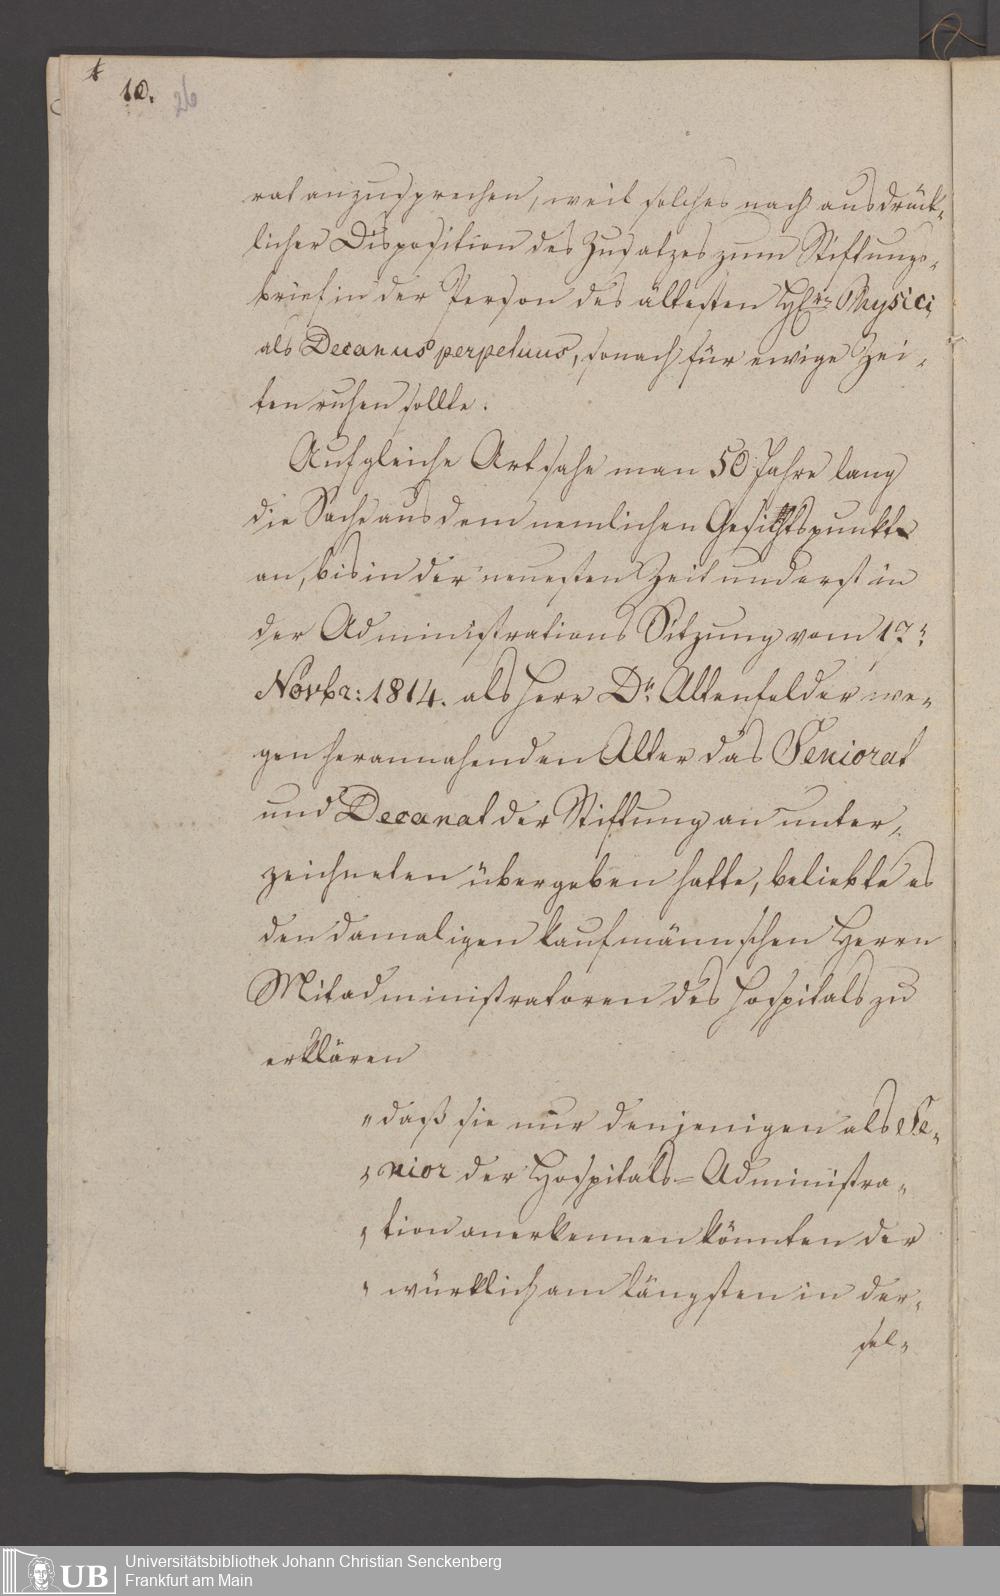 10.
26
rat anzusprechen, weil solches nach ausdrück-
licher Disposition des Zusatzes zum Stiftungs-
brief in der Person des ältesten Physici
als Decanus perpetuus, sonach für ewige Zei-
ten ruhen sollte.
Auf gleiche Art sahe man 50 Jahre lang
die Sache aus dem nemlichen Gesichtspunkte
an, bis in der neuesten Zeit und erst in
der Administrations Sitzung vom 17n
Novbr: 1814. als Herr Dr. Altenfelder we-
gen herannahenden Alter das Seniorat
und Decanat der Stiftung an unter-
zeichneten übergeben hatte, beliebte es
den damaligen kaufmännschen Herrn
Mitadministratoren des Hospitals zu
erklären
"daß sie nur denjenigen als Se-
"nior der Hospitals-Administra-
"tion anerkennen könnten der
"würklich am längsten in der-
sel-
UB
Universitätsbibliothek Johann Christian Senckenberg
Frankfurt am Main